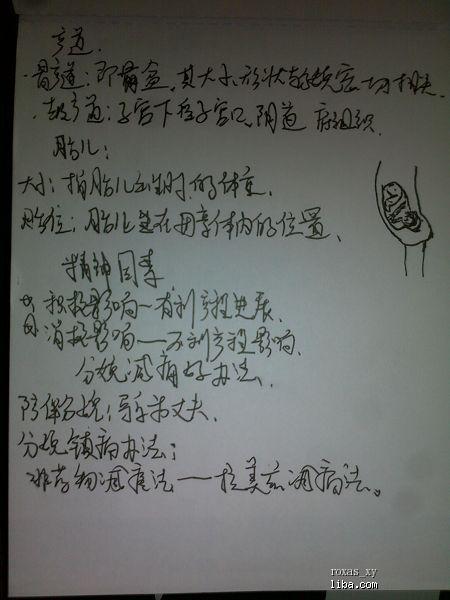 产道:
·骨产道:即骨盆,其大小、形状与分娩密切相关.
·软产道:子宫下段子宫口,阴道 底组织.
胎儿:
大小:指胎儿出生时的体重.
胎位:胎儿生在母亲体内的位置、
精神因素
积极影响—有利产程进展.
消极影响—不利产程影响.
分娩减痛好办法、
陪伴分娩:导乐丈夫.
分娩镇痛办法:
非药物减痛法——拉美兹减痛法。
roxas_xy
liba.com